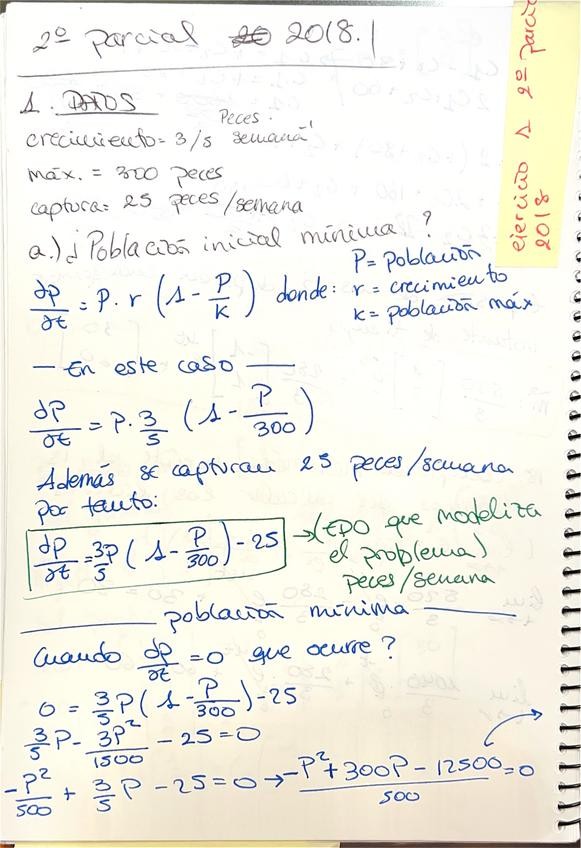 2º parcial 2018.
ejercicio 1 2º parcial
2018
1. DATOS
Peces.
crecimiento = 3/5 semana⁻¹
máx. = 300 peces
captura = 25 peces/semana
a.) ¿Población inicial mínima?
dP/dt = P · r (1 - P/K) donde:
P = población
r = crecimiento
K = población máx
— En este caso —
dP/dt = P · 3/5 (1 - P/300)
Además se capturan 25 peces/semana
por tanto:
dP/dt = 3/5 P (1 - P/300) - 25 → (EDO que modeliza
el problema)
peces/semana
población mínima
Cuando dP/dt = 0 que ocurre?
0 = 3/5 P (1 - P/300) - 25
3/5 P - 3P²/1500 - 25 = 0
-P²/500 + 3/5 P - 25 = 0 → (-P² + 300P - 12500)/500 = 0